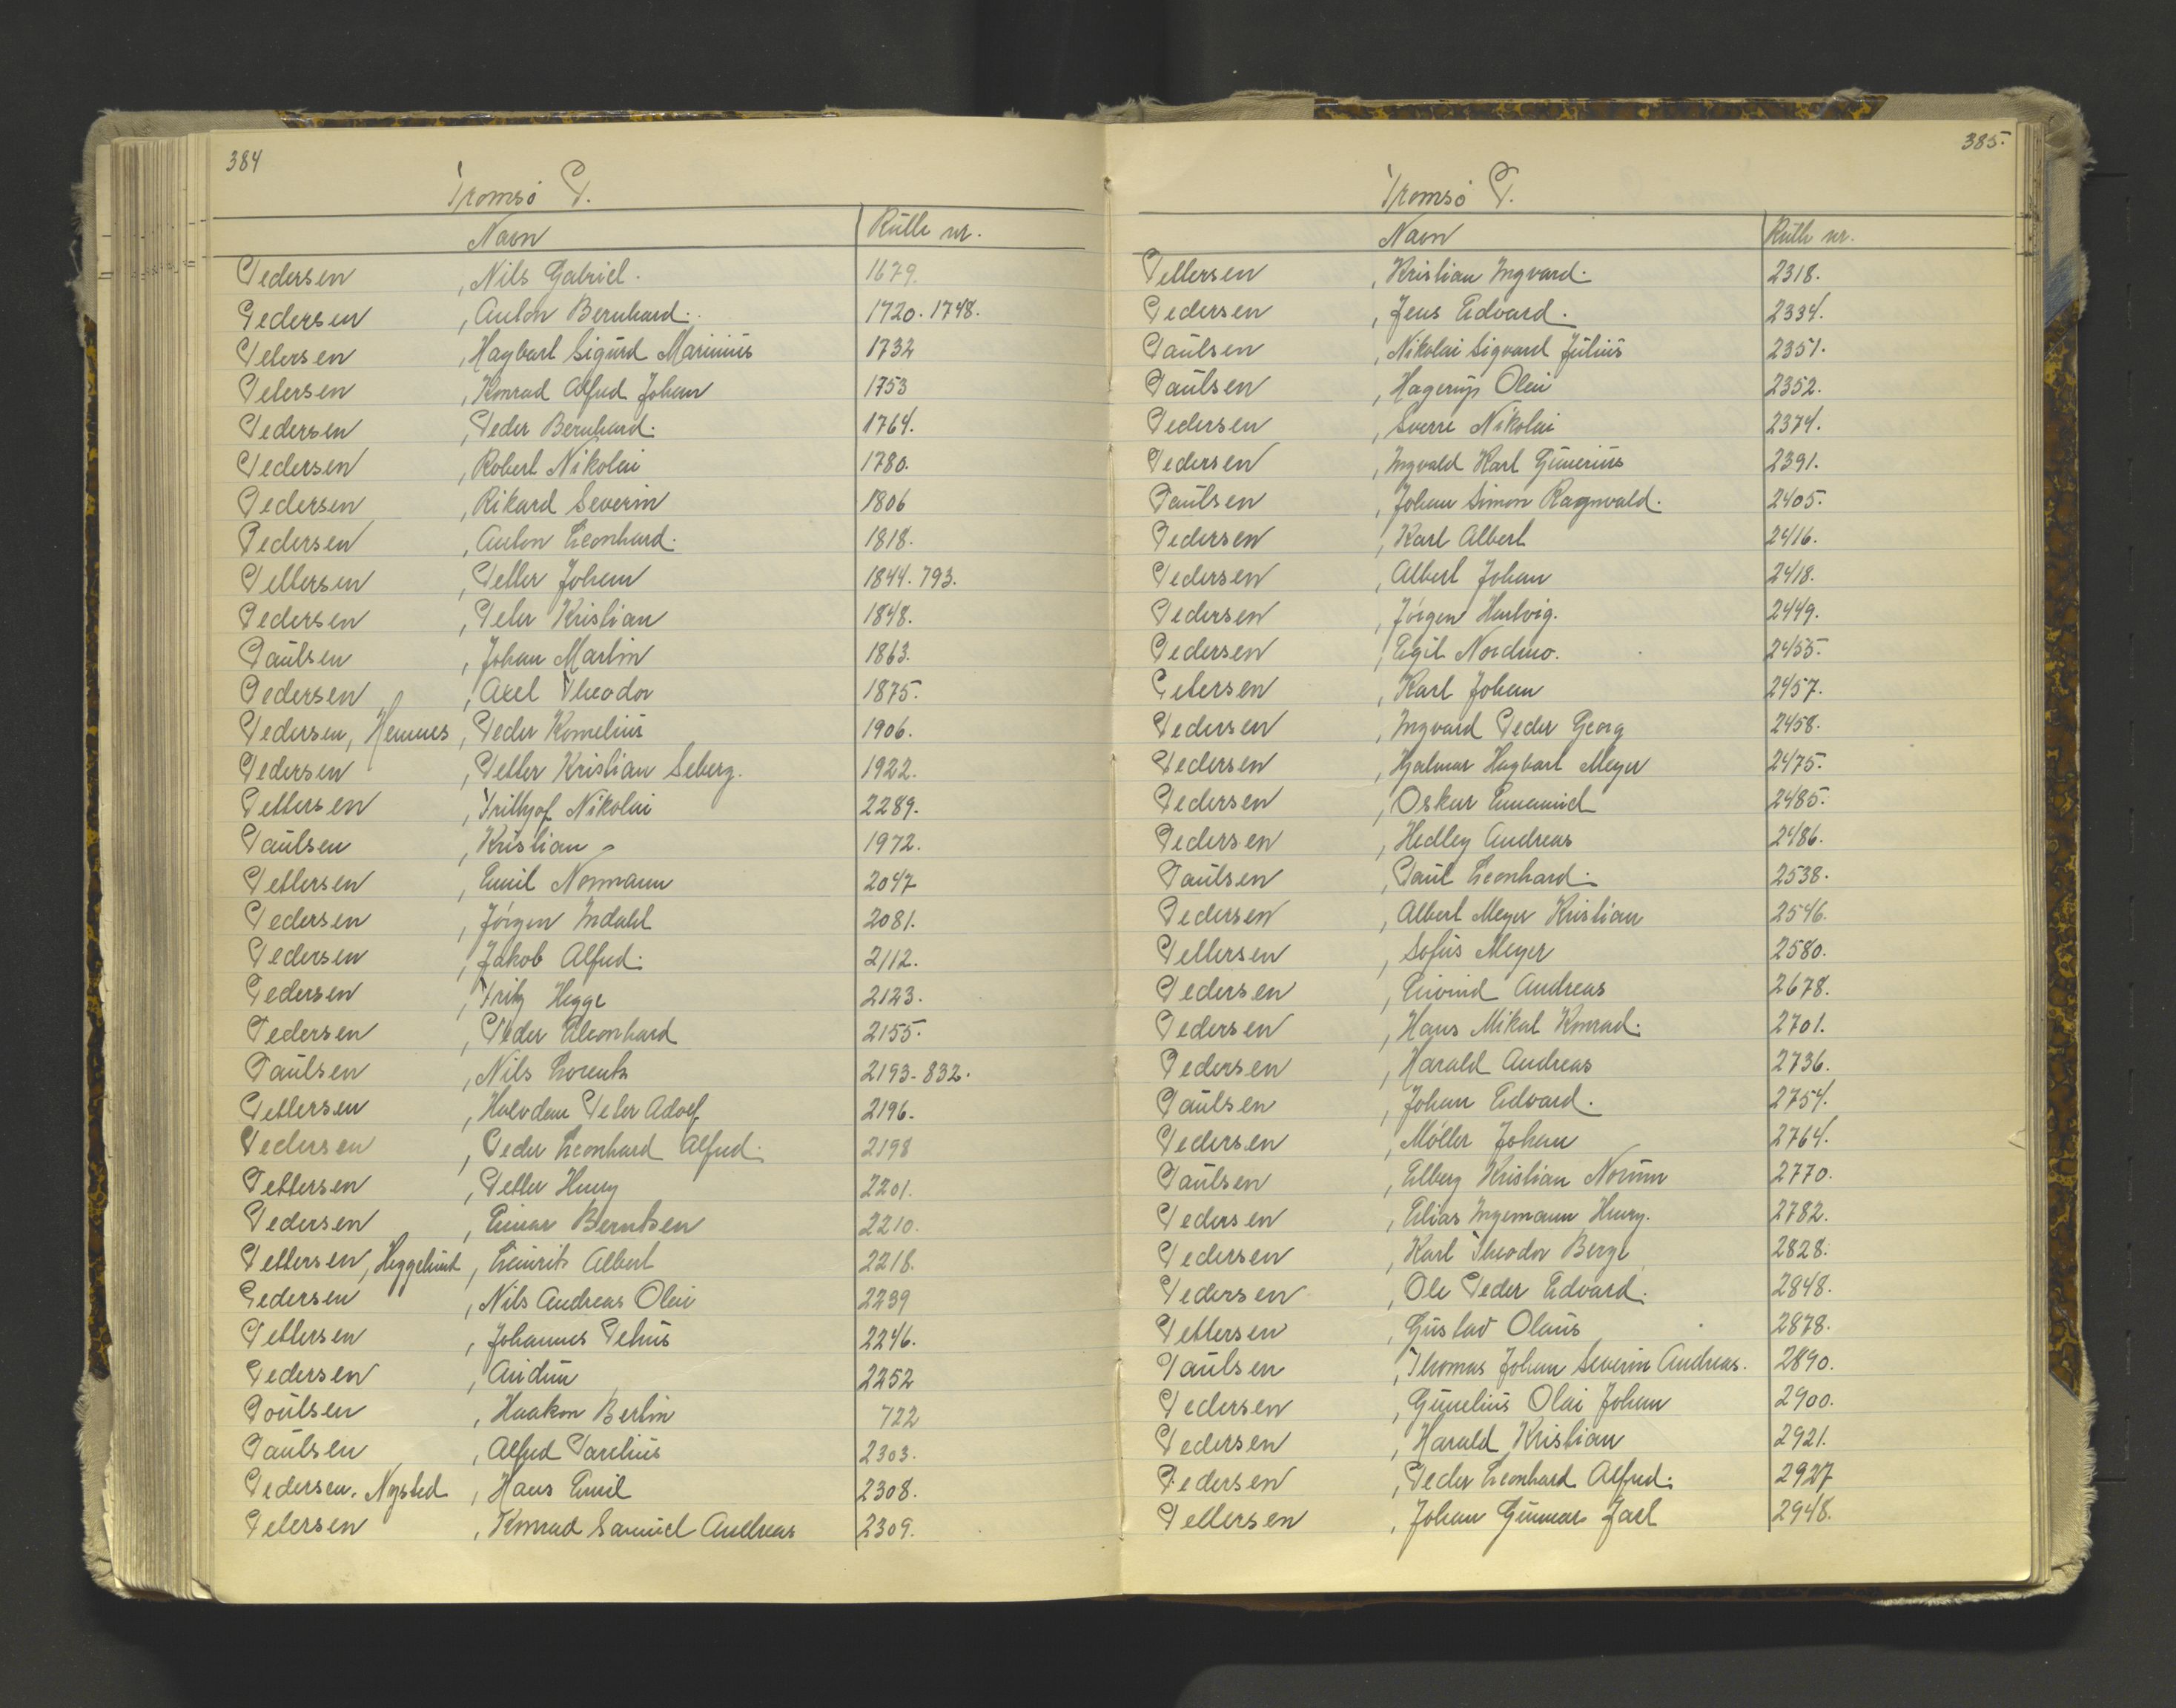 384
Tromsø P.
Navn Rulle nr.
Pedersen , Nils Gabriel. 1679.
Pedersen , Anton Bernhard. 1720. 1748.
Petersen , Hagbart Sigurd Marinius 1732
Petersen , Konrad Alfred Johan 1753
Pedersen , Peder Bernhard. 1764.
Pedersen , Robert Nikolai 1780.
Pedersen , Rikard Severin 1806
Pedersen , Anton Leonhard. 1818.
Pettersen , Petter Johan 1844. 793.
Pedersen , Peter Kristian 1848.
Paulsen , Johan Martin 1863.
Pedersen , Axel Theodor 1875.
Pedersen, Hennes , Peder Kornelius 1906.
Pedersen , Petter Kristian Seberg. 1922.
Pettersen , Frithjof Nikolai 2289.
Paulsen , Kristian 1972.
Pettersen , Emil Normann 2047
Pedersen , Jørgen Indahl 2081.
Pedersen , Jakob Alfred. 2112.
Pedersen , Fritz Hegge 2123.
Pedersen , Peder Eleonhard 2155.
Paulsen , Nils Lorents 2193-832.
Pettersen , Halvdan Peter Adolf 2196.
Pedersen , Peder Leonhard Alfred. 2198
Pettersen , Petter Henry 2201.
Pedersen , Einar Berntsen 2210.
Pettersen, Heggelund , Leinrits Albert 2218.
Pedersen , Nils Andreas Olai 2239
Pettersen , Johannes Petrus 2246.
Pedersen , Audun 2252
Poulsen , Haakon Bertin 722
Paulsen , Alfred Parelius 2303.
Pedersen. Nysted , Hans Emil 2308.
Petersen , Konrad Samuel Andreas 2309.
385.
Tromsø P.
Navn Rulle nr.
Pettersen , Kristian Ingvard. 2318.
Pedersen , Jens Edvard. 2334.
Paulsen , Nikolai Sigvard Julius 2351.
Paulsen , Hagerup Olai 2352.
Pedersen , Sverre Nikolai 2374.
Pedersen , Ingvald Karl Gunerius 2391.
Paulsen , Johan Simon Ragnvald. 2405.
Pedersen , Karl Albert 2416.
Pedersen , Albert Johan 2418.
Pedersen , Jørgen Hartvig. 2449.
Pedersen , Egil Nordmo. 2455.
Petersen , Karl Johan 2457.
Pedersen , Ingvard Peder Georg 2458.
Pedersen , Hjalmar Hagbart Meyer 2475.
Pedersen , Oskar Emanuel 2485.
Pedersen , Hedley Andreas 2486.
Paulsen , Paul Leonhard. 2538.
Pedersen , Albert Meyer Kristian 2546.
Pettersen , Sofus Meyer 2580.
Pedersen , Eivind Andreas 2678.
Pedersen , Hans Mikal Konrad. 2701.
Pedersen , Harald Andreas 2736.
Paulsen , Johan Edvard. 2754.
Pedersen , Møller Johan 2764.
Paulsen , Elberg Kristian Norum 2770.
Pedersen , Elias Ingemann Henry. 2782.
Pedersen , Karl Theodor Berge 2828.
Pedersen , Ole Peder Edvard. 2848.
Pettersen , Gustav Olaus 2878.
Paulsen , Thomas Johan Severin Andreas. 2890.
Pedersen , Gunelius Olai Johan 2900.
Pedersen , Harald Kristian 2921.
Pedersen , Peder Leonhard Alfred. 2927
Pettersen , Johan Gunnar Jarl 2948.